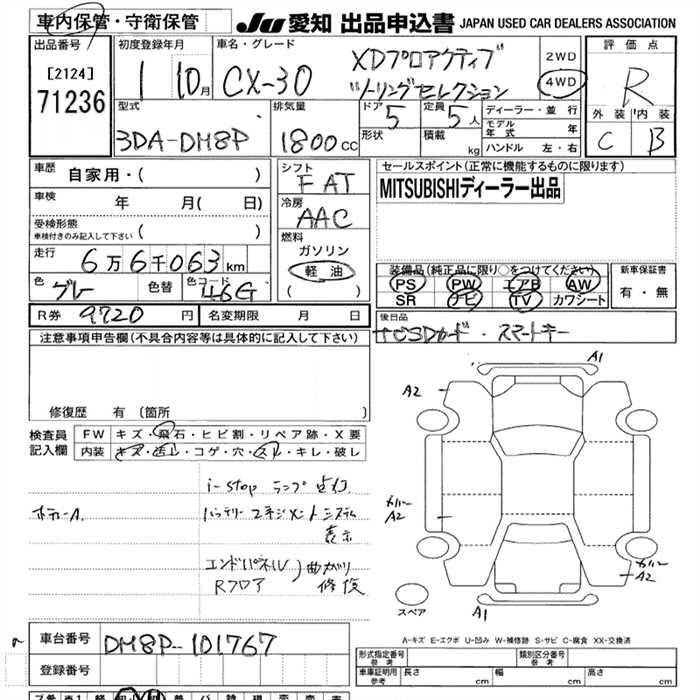 車内保管・守衛保管 JU 愛知 出品申込書 JAPAN USED CAR DEALERS ASSOCIATION
出品番号 初度登録年月 車名・グレード 評価点
[2124] 1 10月 CX-30 XDプロアクティブ 2WD R
71236 ツーリングセレクション 4WD
型式 排気量 ドア 5 定員 5人 ディーラー・並行 外装 内装
モデル年式 年 C B
3DA-DM8P 1800cc 形状 積載 kg ハンドル 左・右
車歴 自家用・( ) シフト セールスポイント(正常に機能するものに限ります)
F AT MITSUBISHIディーラー出品
車検 年 月( 日) 冷房
AAC
受検形態
車検付きのみ記入して下さい( ) 燃料
ガソリン
走行 6万6千063km 軽油 装備品(純正品に限り○をつけてください) 新車保証書
色 グレー 色替 色コード 46G ( ) PS PW エアB AW 有・無
SR ナビ TV カワシート
R券 9720円 名変期限 月 日 後日品
ナビSDカード・スマートキー
注意事項申告欄(不具合内容等は具体的に記入して下さい)
A1
A2
修復歴 有 (箇所 )
検査員 FW キズ・飛石・ヒビ割・リペア跡・X要
記入欄 内装 キズ・汚レ・コゲ・穴・スレ・キレ・破レ
i-stop ランプ点灯
ボデーA. バッテリーマネジメントシステム
表示
A2
エンドパネル)曲がり
Rフロア 修復
A2
スペア A1
A-キズ E-エクボ U-凹み W-補修跡 S-サビ C-腐食 XX-交換済
車台番号 DM8P-101767
型式指定番号 参考 類別区分番号 参考
登録番号 車庫証明用 参考 長さ cm 幅 cm 高さ cm